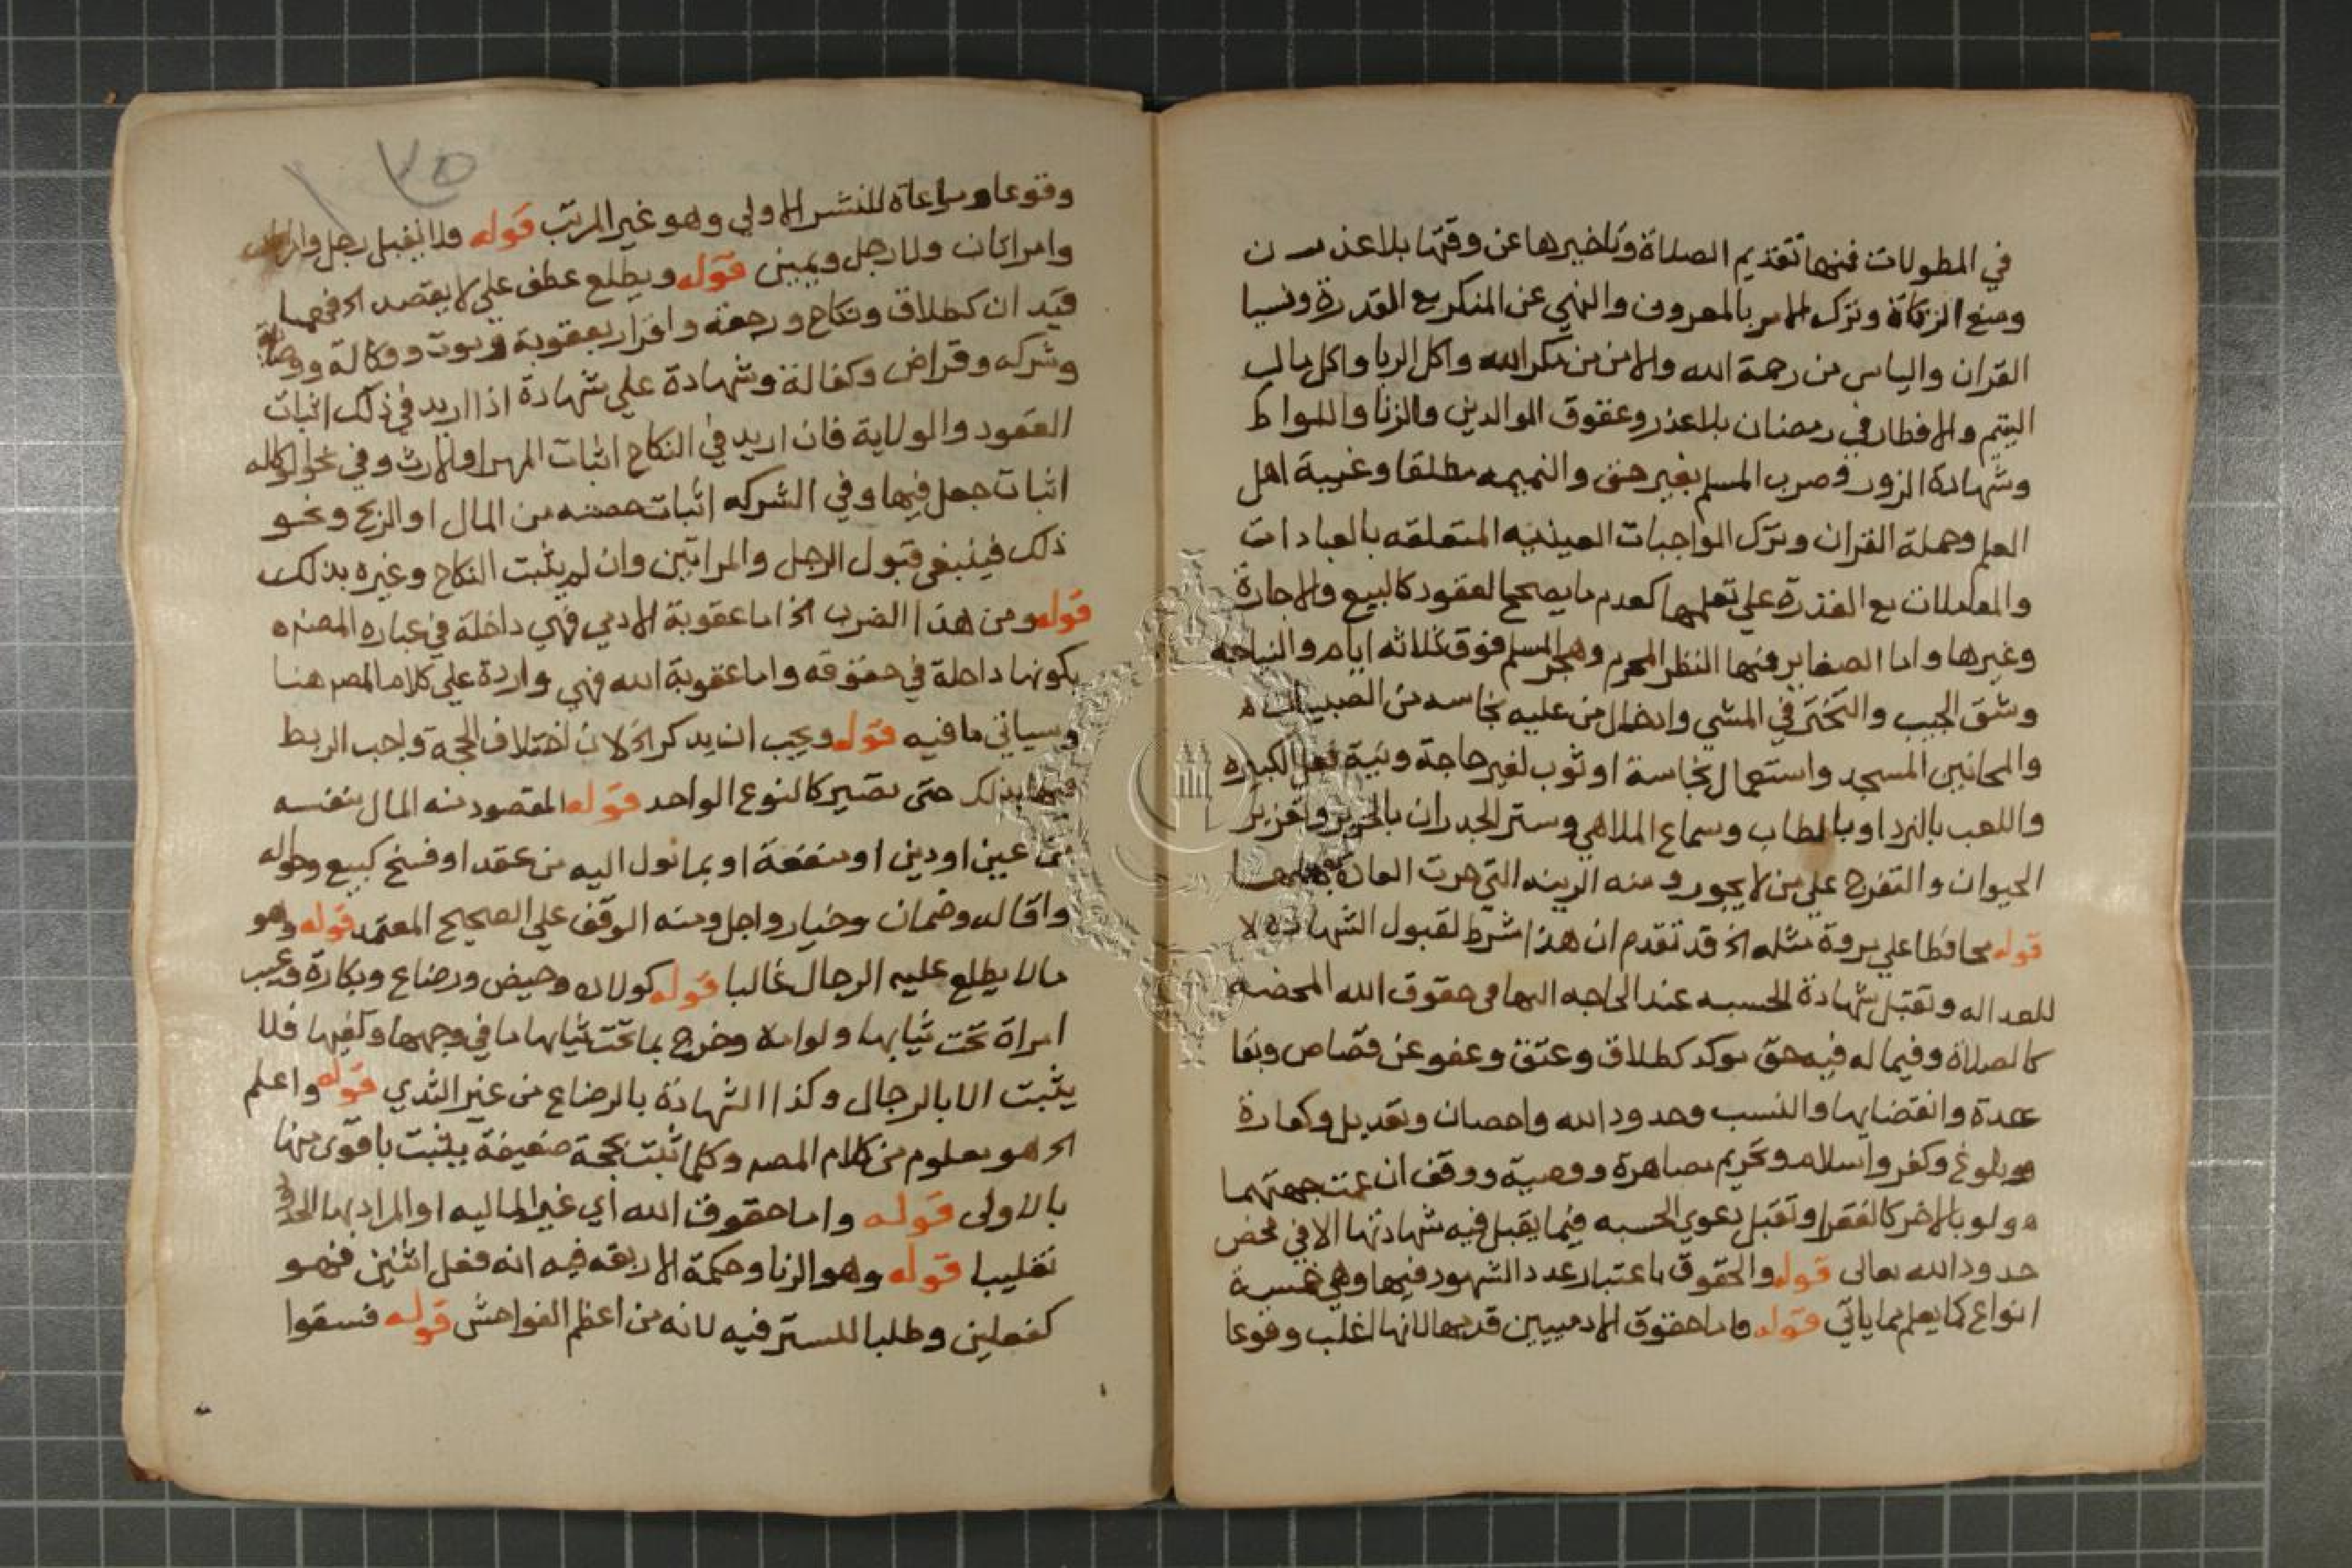 في المطولات فمنها تقديم الصلاة وتاخيرها عن وقتها بلا عذر
ومنع الزكاة وترك الامر بالمعروف والنهي عن المنكر مع القدرة ونسيا
القران والياس من رحمة الله والامن من مكر الله واكل الربا واكل مال
اليتيم والافطار في رمضان بلا عذر وعقوق الوالدين والزنا واللواط
وشهادة الزور وضرب المسلم بغير حق والنميمه مطلقا وغيبة اهل
العلم وحملة القران وترك الواجبات العينيه المتعلقه بالعبادات
والمعاملات مع القدرة علي تعلمها كعدم ما يصحح العقود كالبيع والاجارة
وغيرها واما الصغاير فمنها النظر المحرم وهجر المسلم فوق ثلاثه ايام والنياحه
وشق الجيب والتبختر في المشي وادخال من عليه نجاسه من الصبيان
والمجانين المسجد واستعمال نجاسة او ثوب لغير حاجة ونية فعل الكبيره
واللعب بالنرد او بالطاب وسماع الملاهي وستر الجدران بالحرير
الحيوان والتفرج علي من لا يجوز ومنه الزينه التي جرت العادة
قوله محافظا علي مروة مثله الخ قد تقدم ان هذا شرط لقبول الشهادة لا
للعداله وتقبل شهادة الحسبه عند الحاجه اليها في حقوق الله المحضه
كالصلاة وفيما له فيه حق موكد كطلاق وعتق وعفو عن قصاص وبقا
عدة وانقضايها والنسب وحدود الله واحصان وتعديل وكفارة
وبلوغ وكفر واسلام وتحريم مصاهرة ووصية ووقف ان عمت جهتهما
ولو بالاخر كالفقرا وتقبل دعوي الحسبه فيما يقبل فيه شهادتها الا في محض
حدود الله تعالى قوله والحقوق باعتبار عدد الشهود فيها وهي خمسة
انواع كما يعلم مما ياتي قوله واما حقوق الادميين قدمها لانها اغلب وقوعا
وقوعا ومراعاة للنشر الاولي وهو غير المرتب قوله ولا يقبل رجل
وامراتان ولا رجل ويمين قوله ويطلع عطف علي لا يقصد الخ فهما
قيد ان كطلاق ونكاح ورجعة واقرار بعقوبة وموت ووكالة ووصاية
وشركه وقراض وكفالة وشهادة علي شهادة اذا اريد في ذلك اثبات
العقود والولاية فان اريد في النكاح اثبات المهر او الارث وفي نحو الوكاله
اثبات جعل فيها وفي الشركه اثبات حصته من المال او الربح ونحو
ذلك فينبغي قبول الرجل والمراتين وان لم يثبت النكاح وغيره بذلك
قوله ومن هذا الضرب الخ اما عقوبة الادمي فهي داخلة في عباره المصنف
بكونها داخلة في حقوقه واما عقوبة الله فهي واردة علي كلام المصم هنا
وسياتي ما فيه قوله ويجب ان يذكر الخ لان اختلاف الحجة واجب الربط
فيها بذلك حتى تصير كالنوع الواحد قوله المقصود منه المال بنفسه
من عين او دين او منفعة او بما تول اليه من عقد او فسخ كبيع وحواله
واقاله وضمان وخيار واجل ومنه الوقف علي الصحيح المعتمد قوله وهو
ما لا يطلع عليه الرجال غالبا قوله كولاده وحيض ورضاع وبكارة وعيب
امراة تحت ثيابها ولو امه وخرج بما تحت ثيابها ما في وجهها وكفيها فلا
يثبت الا بالرجال وكذا الشهادة بالرضاع من غير الثدي قوله واعلم
الخ هو معلوم من كلام المصم وكلما ثبت بحجة ضعيفة يثبت باقوى منها
بالاولى قوله واما حقوق الله اي غير الماليه او المراد بها الحدود
تغليبا قوله وهو الزنا وحكمة الاربعه فيه انه فعل اثنين فهو
كفعلين وطلبا للستر فيه لانه من اعظم الفواحش قوله فسقوا